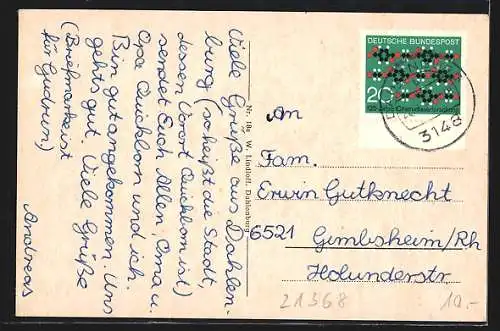 Viele Grüße aus Dahlen-
burg (so heißt die Stadt,
dessen Vorort Quickborn ist)
sendet Euch Allen, Oma u.
Opa Quickborn und ich.
Bin gut angekommen. Uns
gehts gut. Viele Grüße
(Briefmarke ist
für Gudrun)
Andreas
Nr. 18s W. Lindloff, Dahlenburg
DEUTSCHE BUNDESPOST
20
125 Jahre Chemiefaserforschung
3148
An
Fam.
Erwin Gutknecht
6521 Gimbsheim/Rh
Holunderstr
21368
10.-